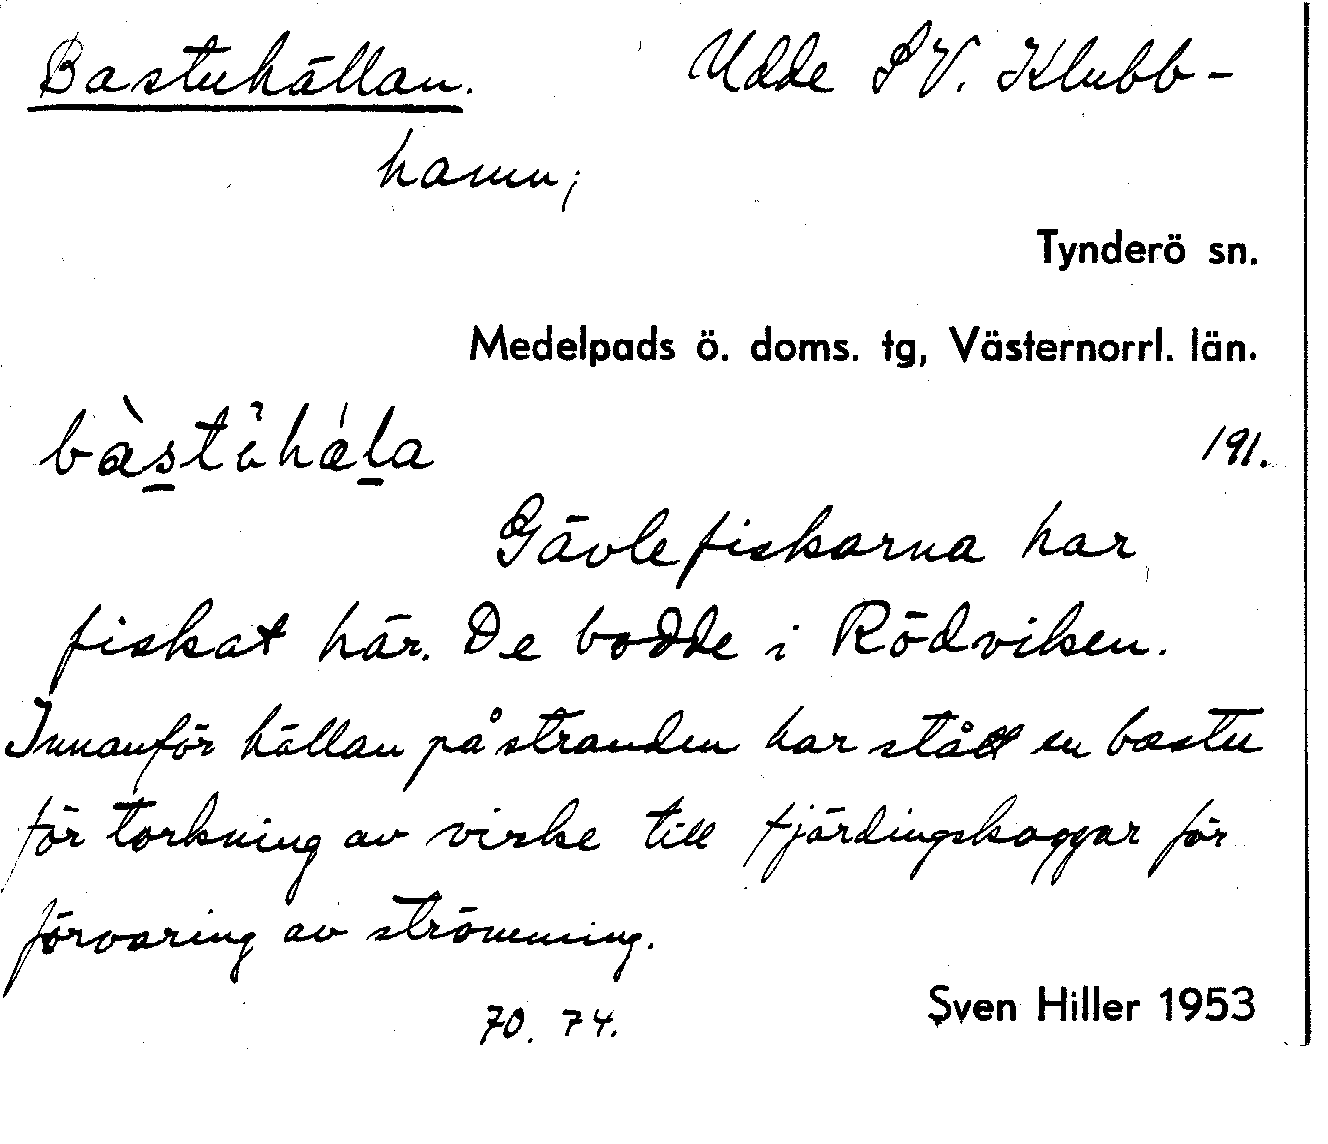 Bastuhällan. Udde SV. Klubb-
hamn;
Tynderö sn.
Medelpads ö. doms. tg, Västernorrl. län.
191.
Gävlefiskarna har
fiskat här. De bodde i Rödviken.
Innanför hällan på stranden har stått en bastu
för torkning av virke till fjärdingskaggar för
förvaring av strömming.
70. 74. Sven Hiller 1953